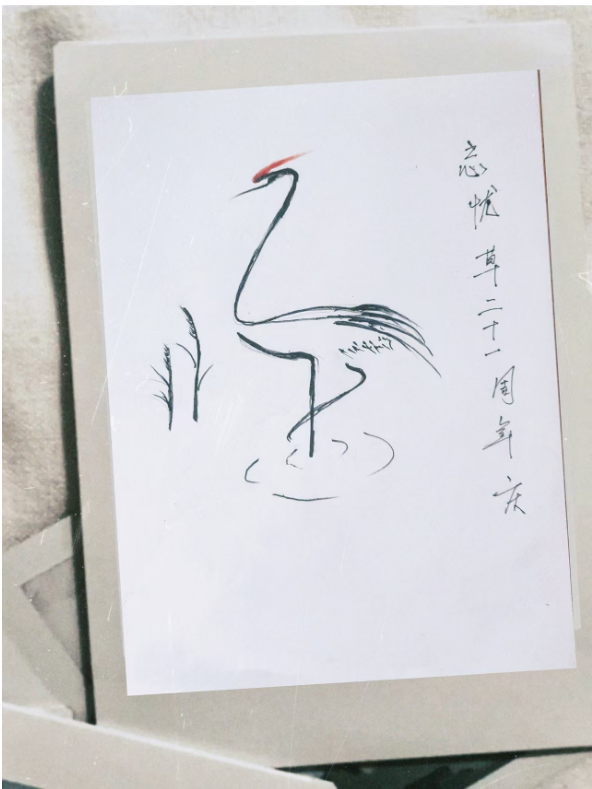 忘忧草二十一周年庆